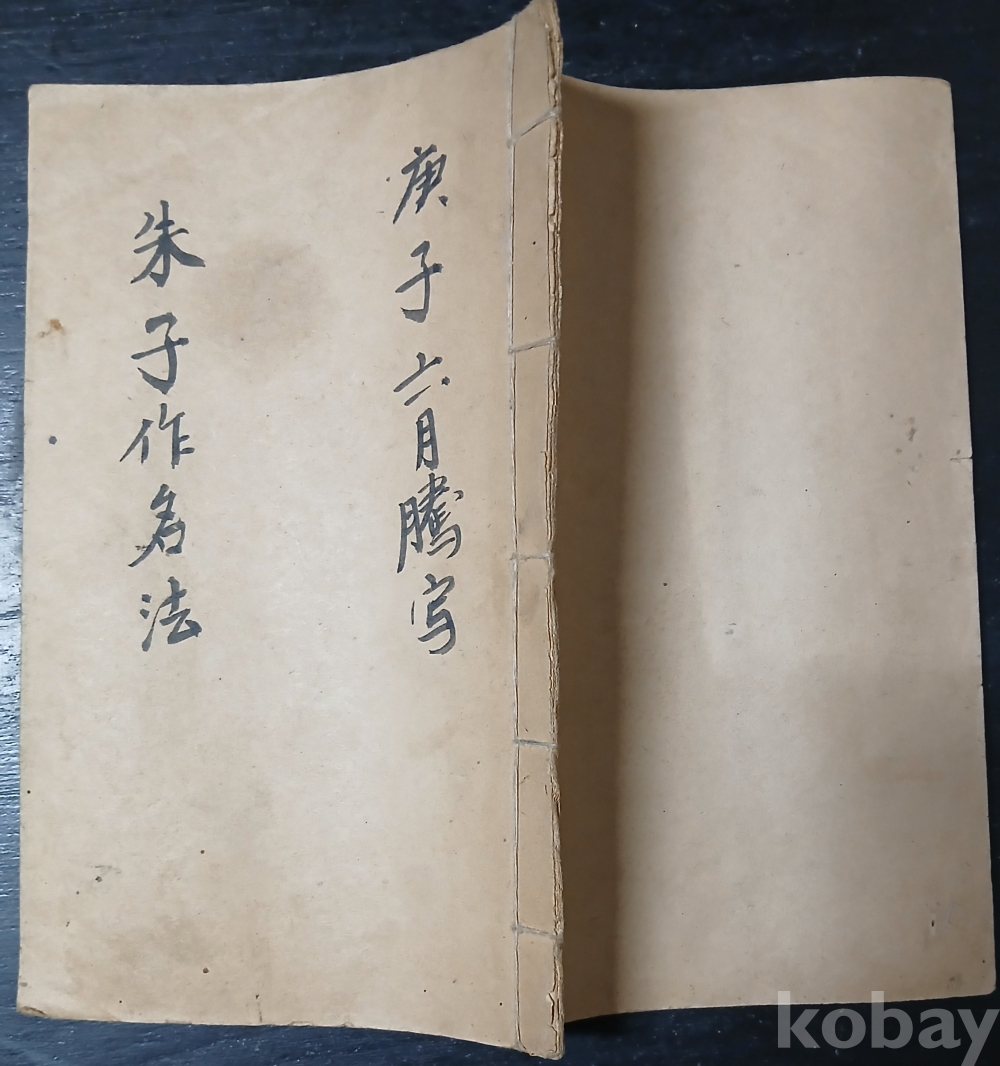 庚子六月騰写
朱子作名法
kobay